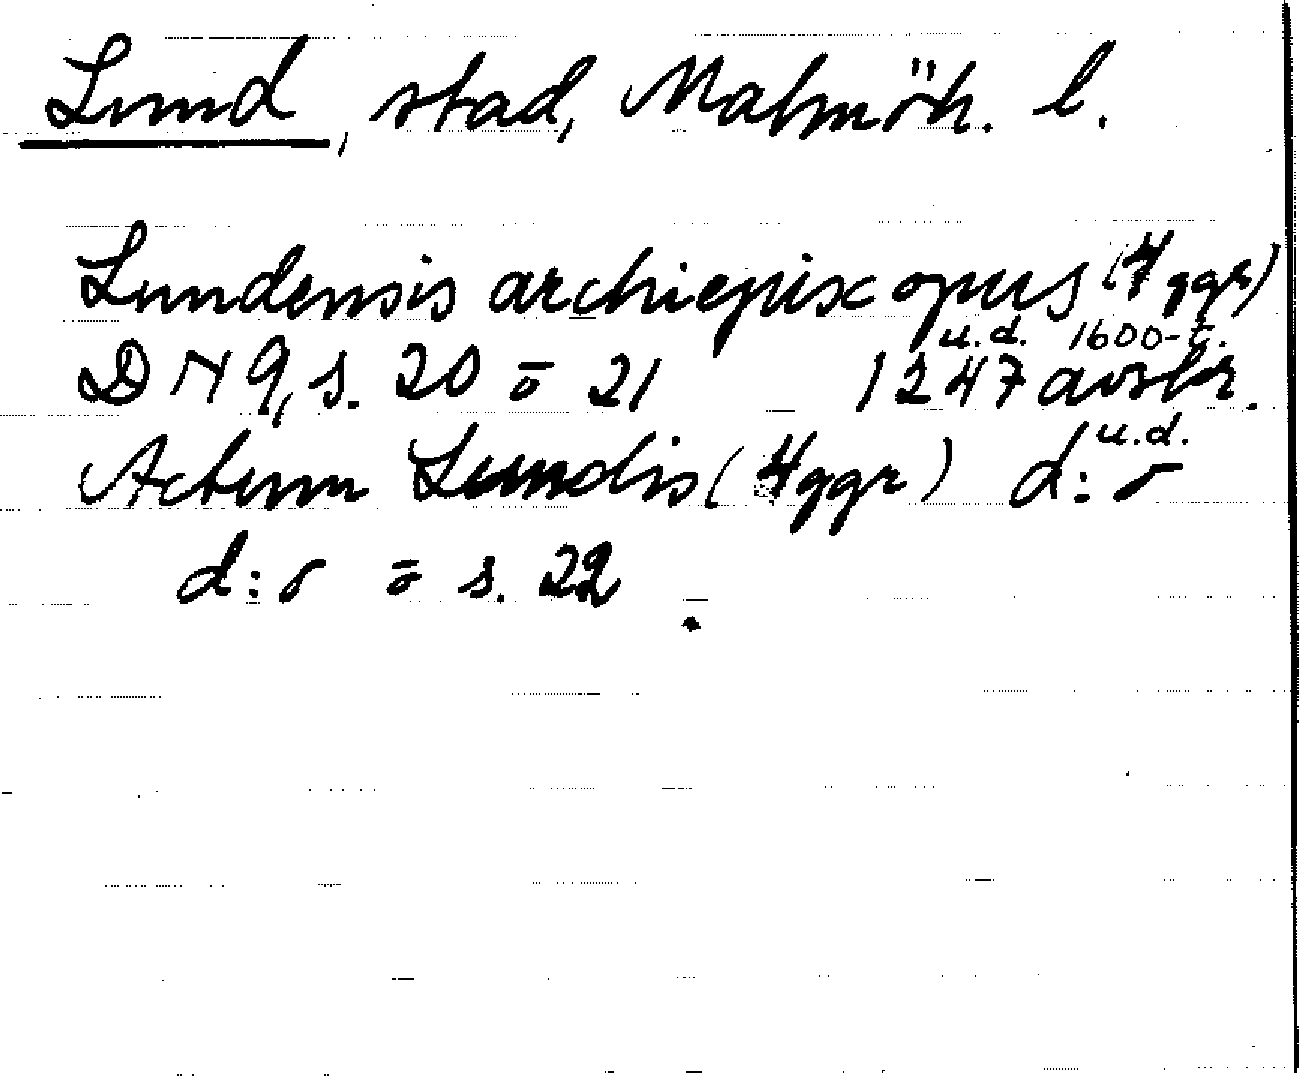 Lund, stad, Malmöh. l.
Lundensis archiepiscopus (4 ggr)
u.d. 1600-t.
DN 9, s. 20 o 21 1247 avskr.
u.d.
Actum Lundis (4ggr) d:o
d:o o s. 22